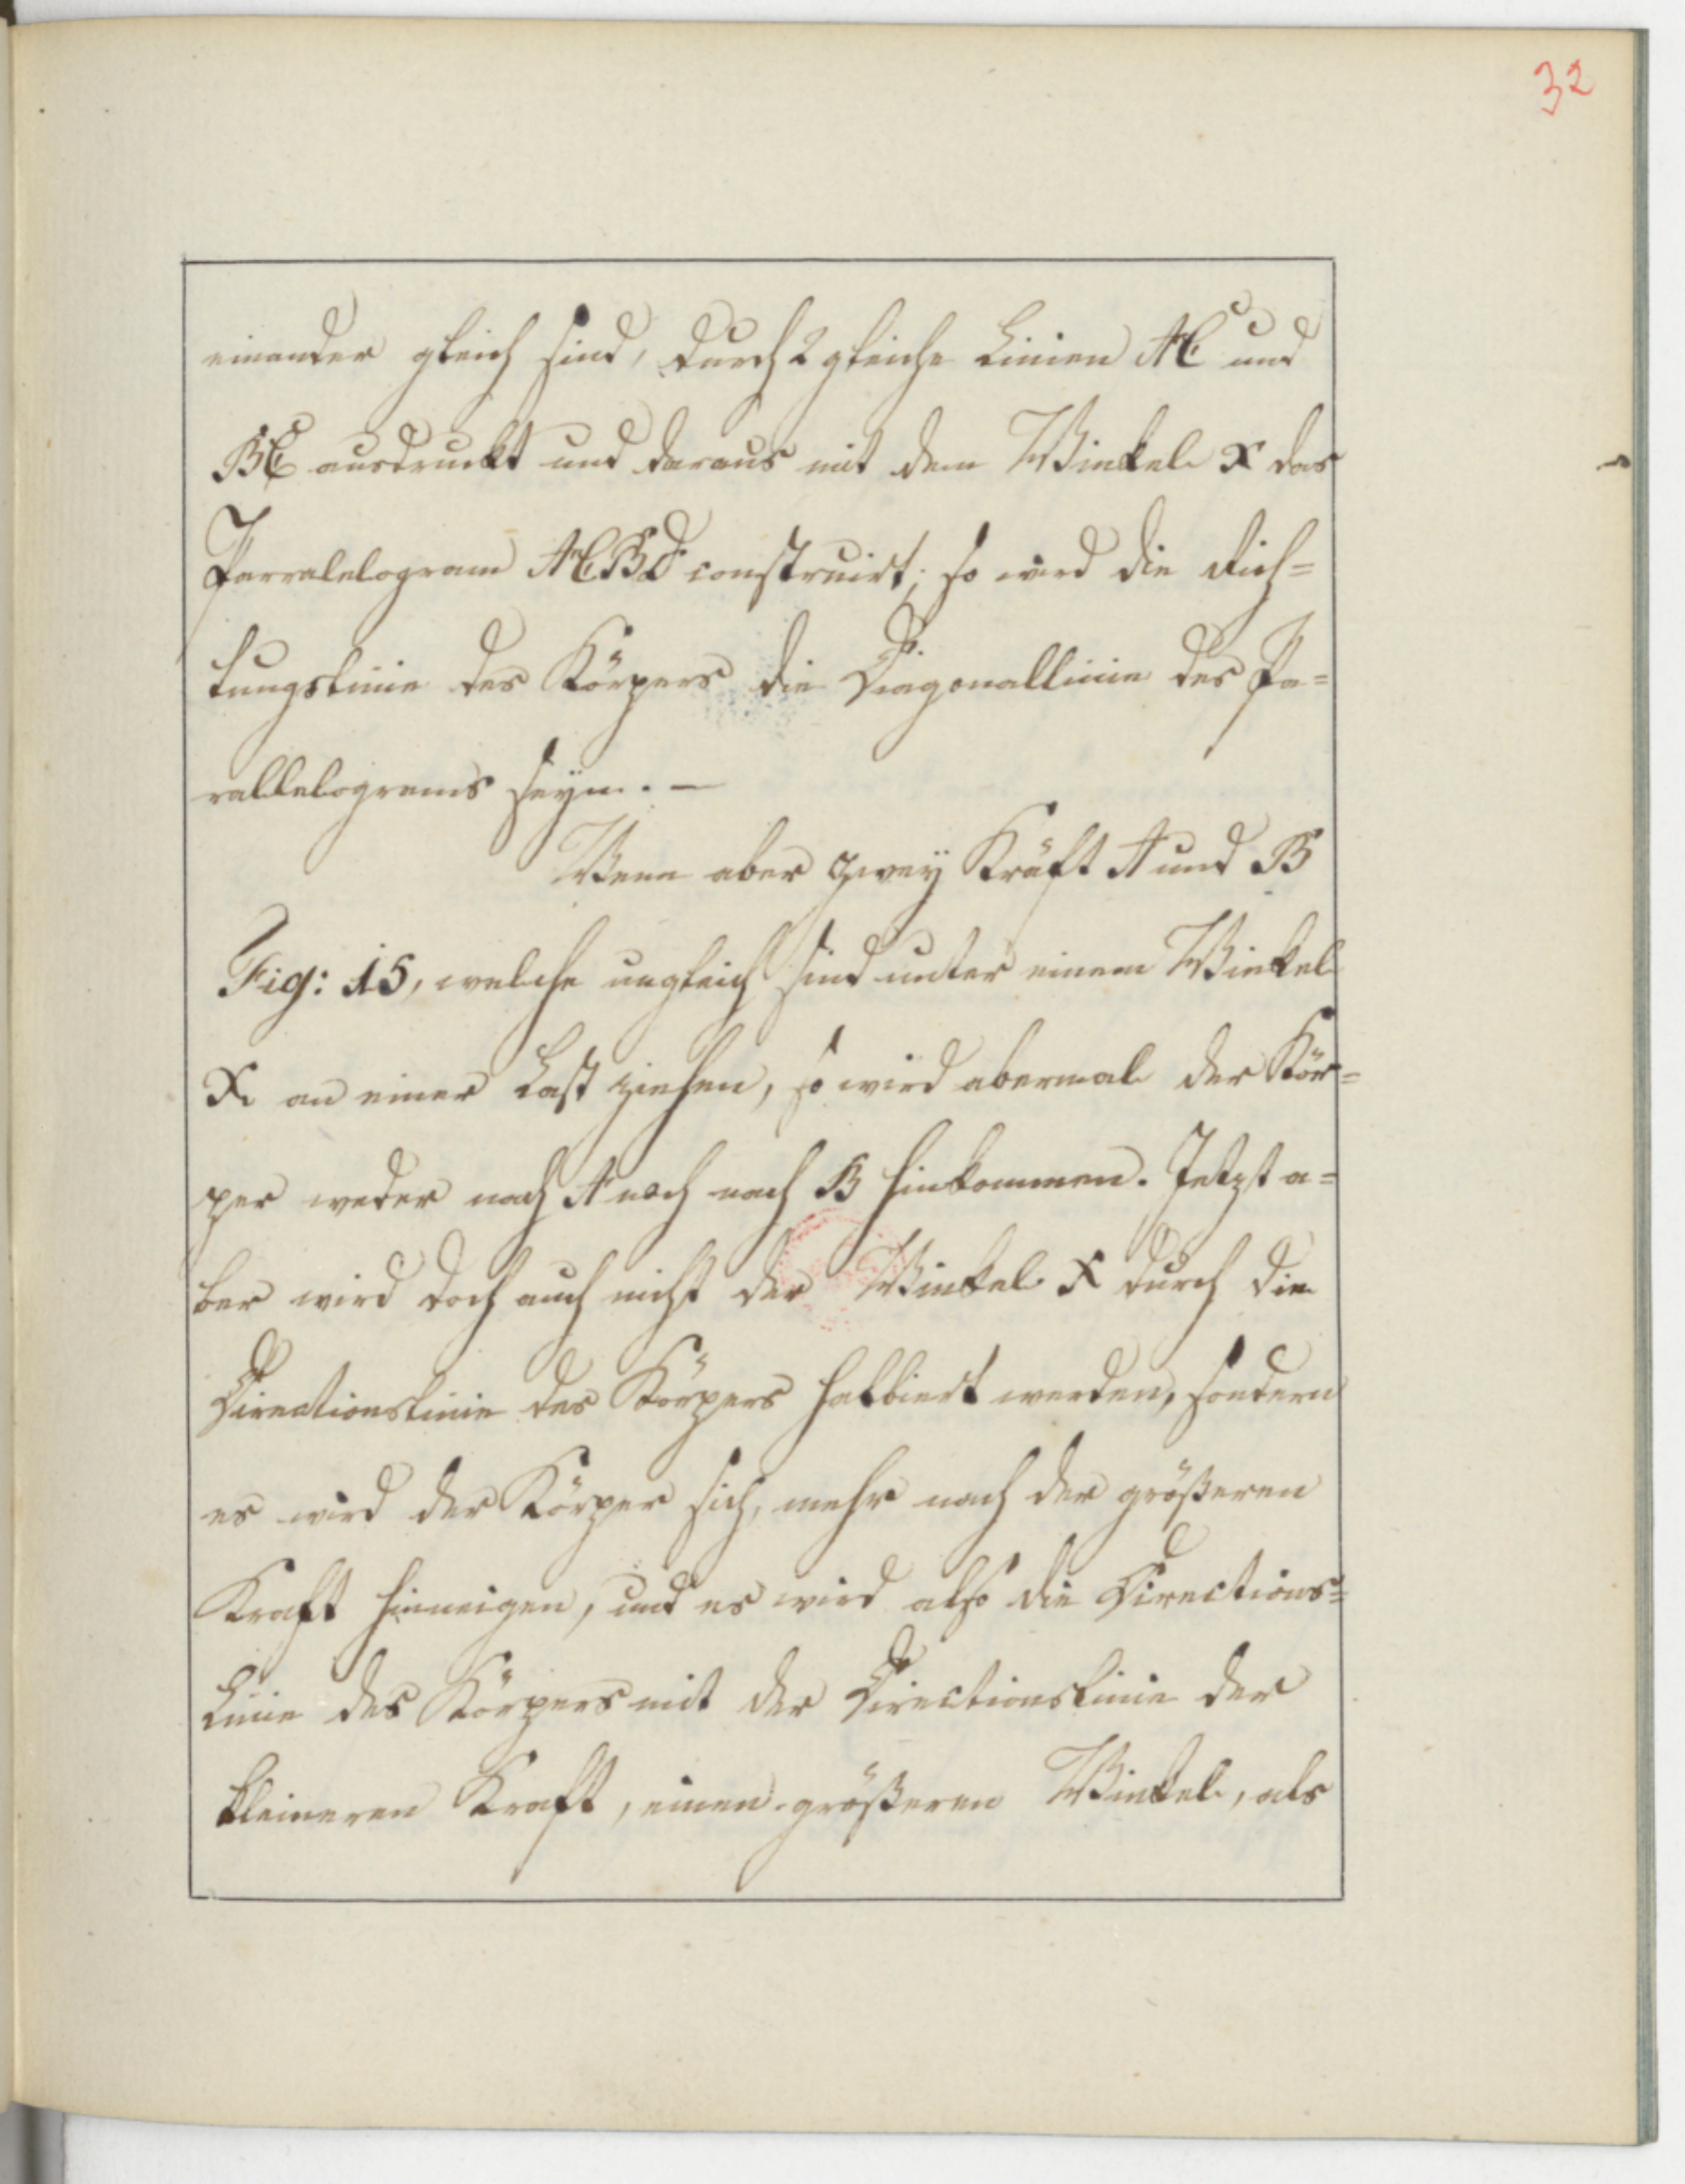 32
einander gleich sind, durch 2 gleiche Linien AC und
BC ausdruckt und daraus mit dem Winkel x das
Parralelogram ACBD construirt; so wird die Rich=
tungslinie des Körpers die Diagonallinie des Pa=
rallelograms seyn. —
Wenn aber zwey Kräft A und B
Fig: 15, welche ungleich sind unter einem Winkel
X an einer Last ziehen, so wird abermal der Kör=
per weder nach A noch nach B hinkommen. Jetzt a=
ber wird doch auch nicht der Winkel X durch die
Directionslinie des Körpers halbiert werden, sondern
es wird der Körper sich, mehr nach der größeren
Kraft hinneigen, und es wird also die Directions=
Linie des Körpers mit der Directionslinie der
kleineren Kraft, einen größeren Winkel, als